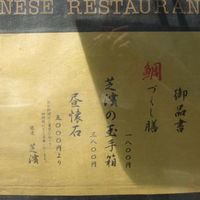 NESE RESTAURAN
御品書
鯛づくし膳
一八〇〇円
芝濱の玉手箱
三八〇〇円
昼懐石
五〇〇〇円より
芝濱